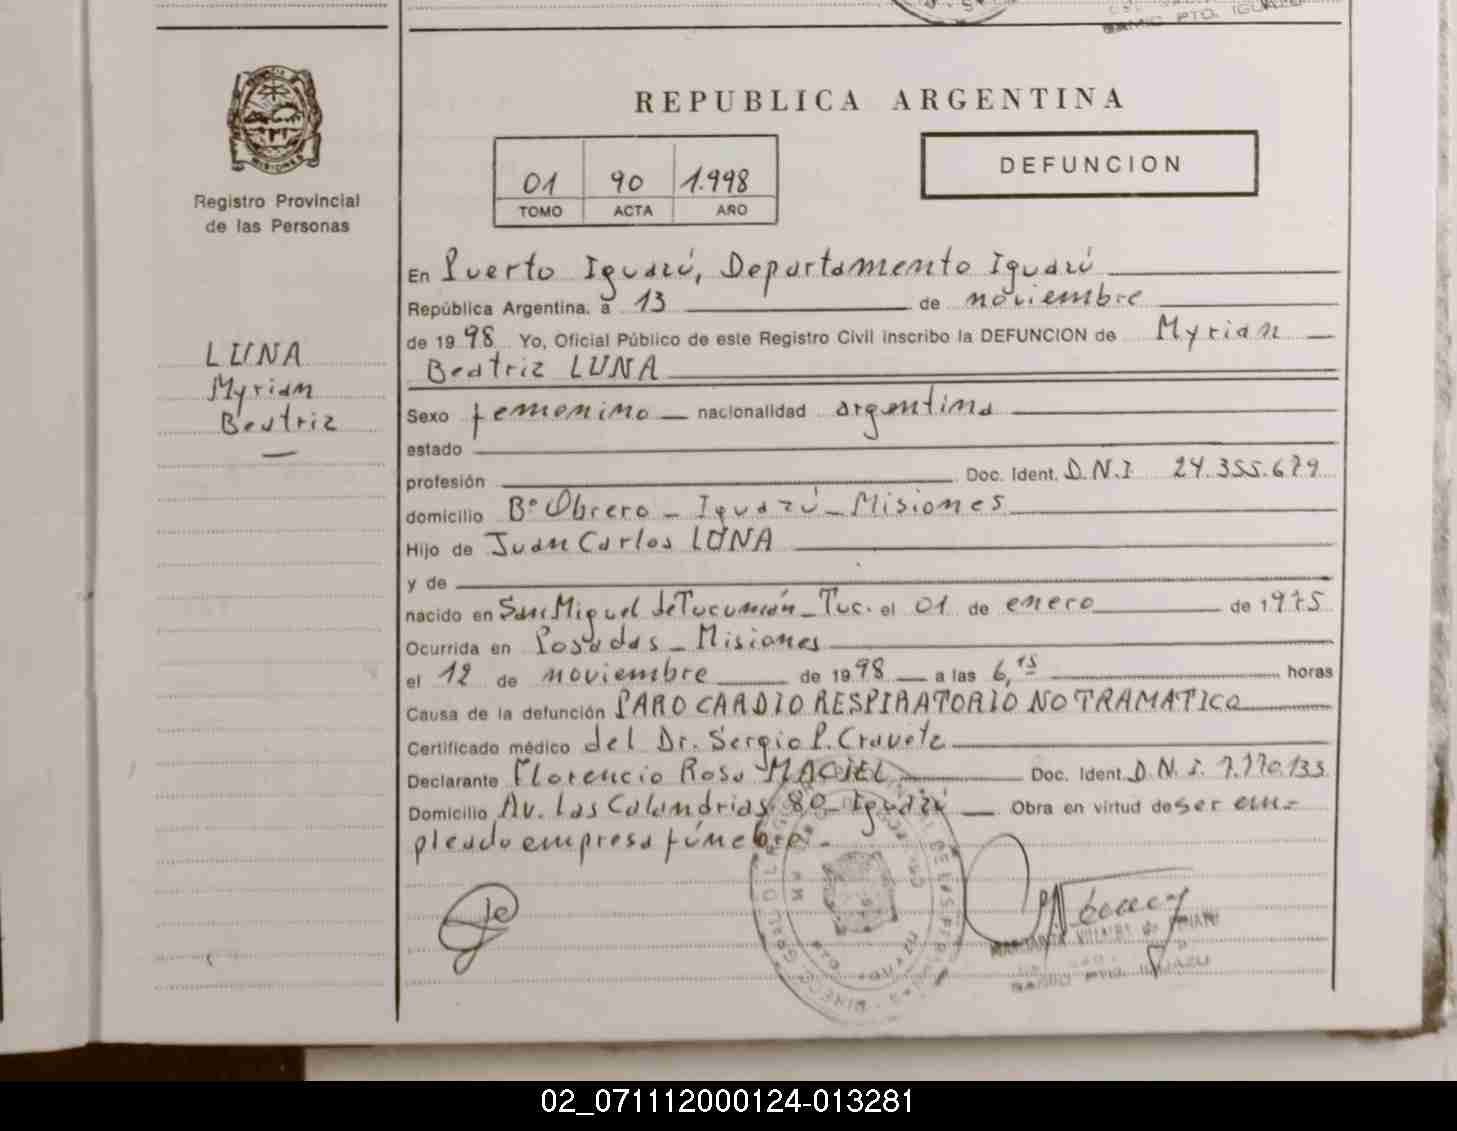 REPUBLICA ARGENTINA
DEFUNCION
01 90 1.998
TOMO ACTA AÑO
MISIONES
Registro Provincial
de las Personas
LUNA
Myrian
Beatriz
En Puerto Iguazú, Departamento Iguazú
República Argentina, a 13 de noviembre
de 1998 Yo, Oficial Público de este Registro Civil inscribo la DEFUNCION de Myrian
Beatriz LUNA
Sexo femenino nacionalidad argentina
estado
profesión Doc. Ident. D.N.I 24.355.679
domicilio Bº Obrero - Iguazú - Misiones
Hijo de Juan Carlos LUNA
y de
nacido en San Miguel de Tucumán - Tuc. el 01 de enero de 1975
Ocurrida en Posadas - Misiones
el 12 de noviembre de 1998 a las 6,15 horas
Causa de la defunción PARO CARDIO RESPIRATORIO NO TRAMATICO
Certificado médico del Dr. Sergio P.
Declarante Florencio Rosa MACIEL Doc. Ident. D.N.I. 7.770.133
Domicilio Av. Las Calandrias 80 - Iguazú Obra en virtud de ser em-
pleado empresa fúnebre.-
02_071112000124-013281